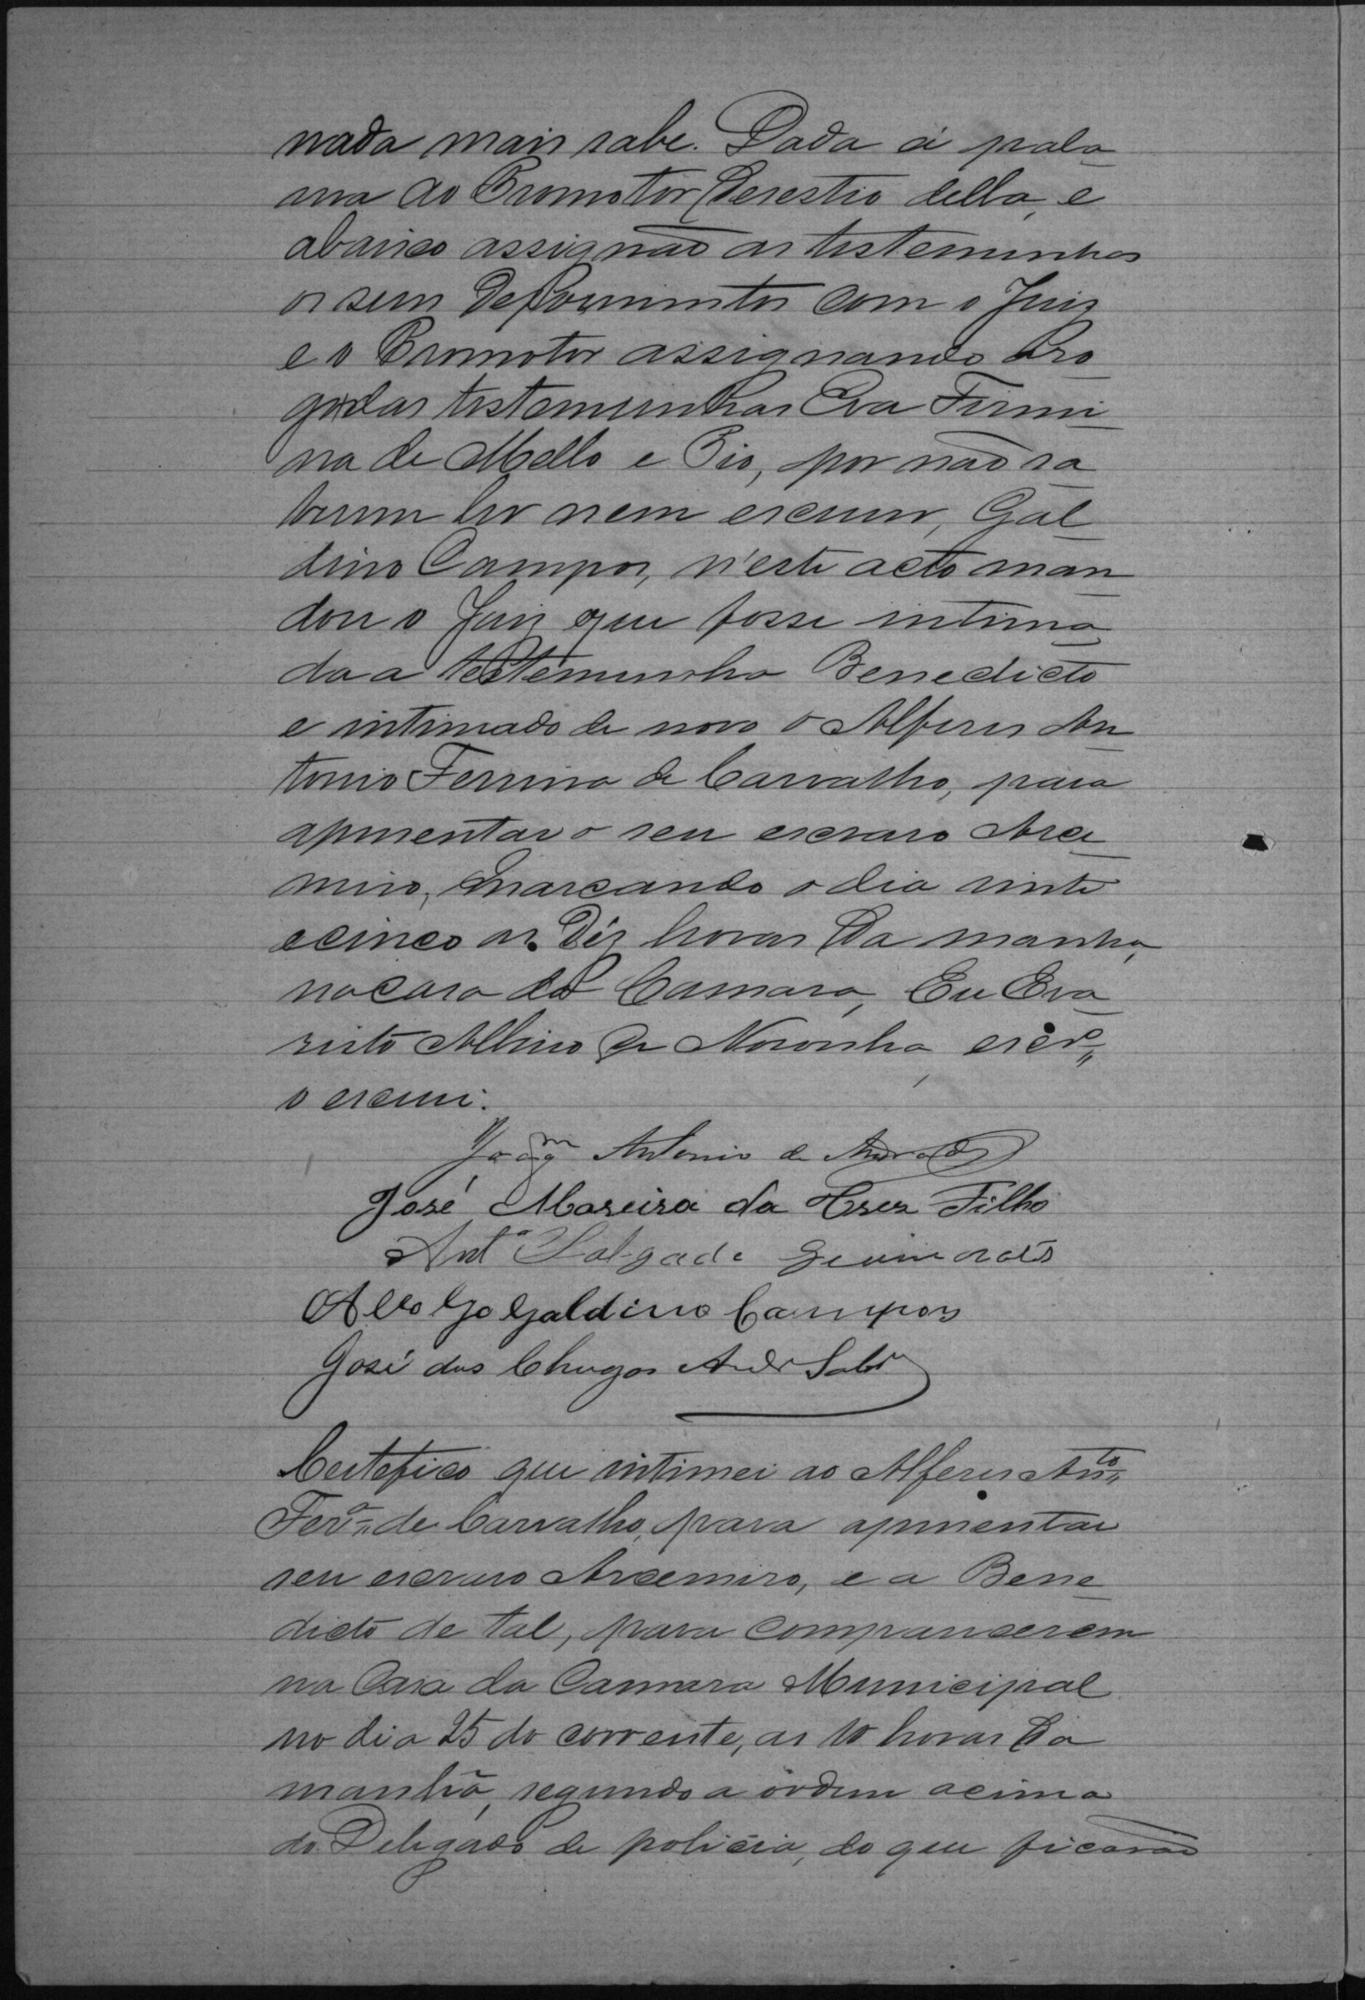 nada mais sabe. Dada á pala
vra ao Promotor, desestio della, e
abaixo assignão as testemunhas
os seus depoimentos com o Juiz
e o Promotor assignando Aro
go das testemunhas Eva Firmi
na de Mello e Pio, por não sa
berem ler nem escrever, Gal
dino Campos, n'este acto man
dou o Juiz que fosse intima
da a testemunha Benedicto
e intimado de novo o Alferes An
tonio Ferreira de Carvalho, para
apresentar o seu escravo Arce
miro, marcando o dia vinte
e cinco as Déz horas da manhã,
na casa da Camara, Eu Eva
risto Albino de Noronha, escr.º
o escrevi.
Joaqm Antonio de Andrade
José Moreira da Cruz Filho
Antº Salgado Guimarães
Galdino Campos
José das Chagas Andr
Certefico que intimei ao Alferes Anto
Ferra de Carvalho, para apresentar
seu escravo Arcemiro, e a Bene
dicto de tal, para comparecerem
na Casa da Camara Municipal
no dia 25 do corrente, as 10 horas da
manhã, segundo a órdem acima
do Delegado de policia, do que ficarão